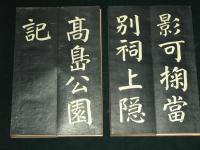 影可掬當
別祠上隠
髙島公園
記